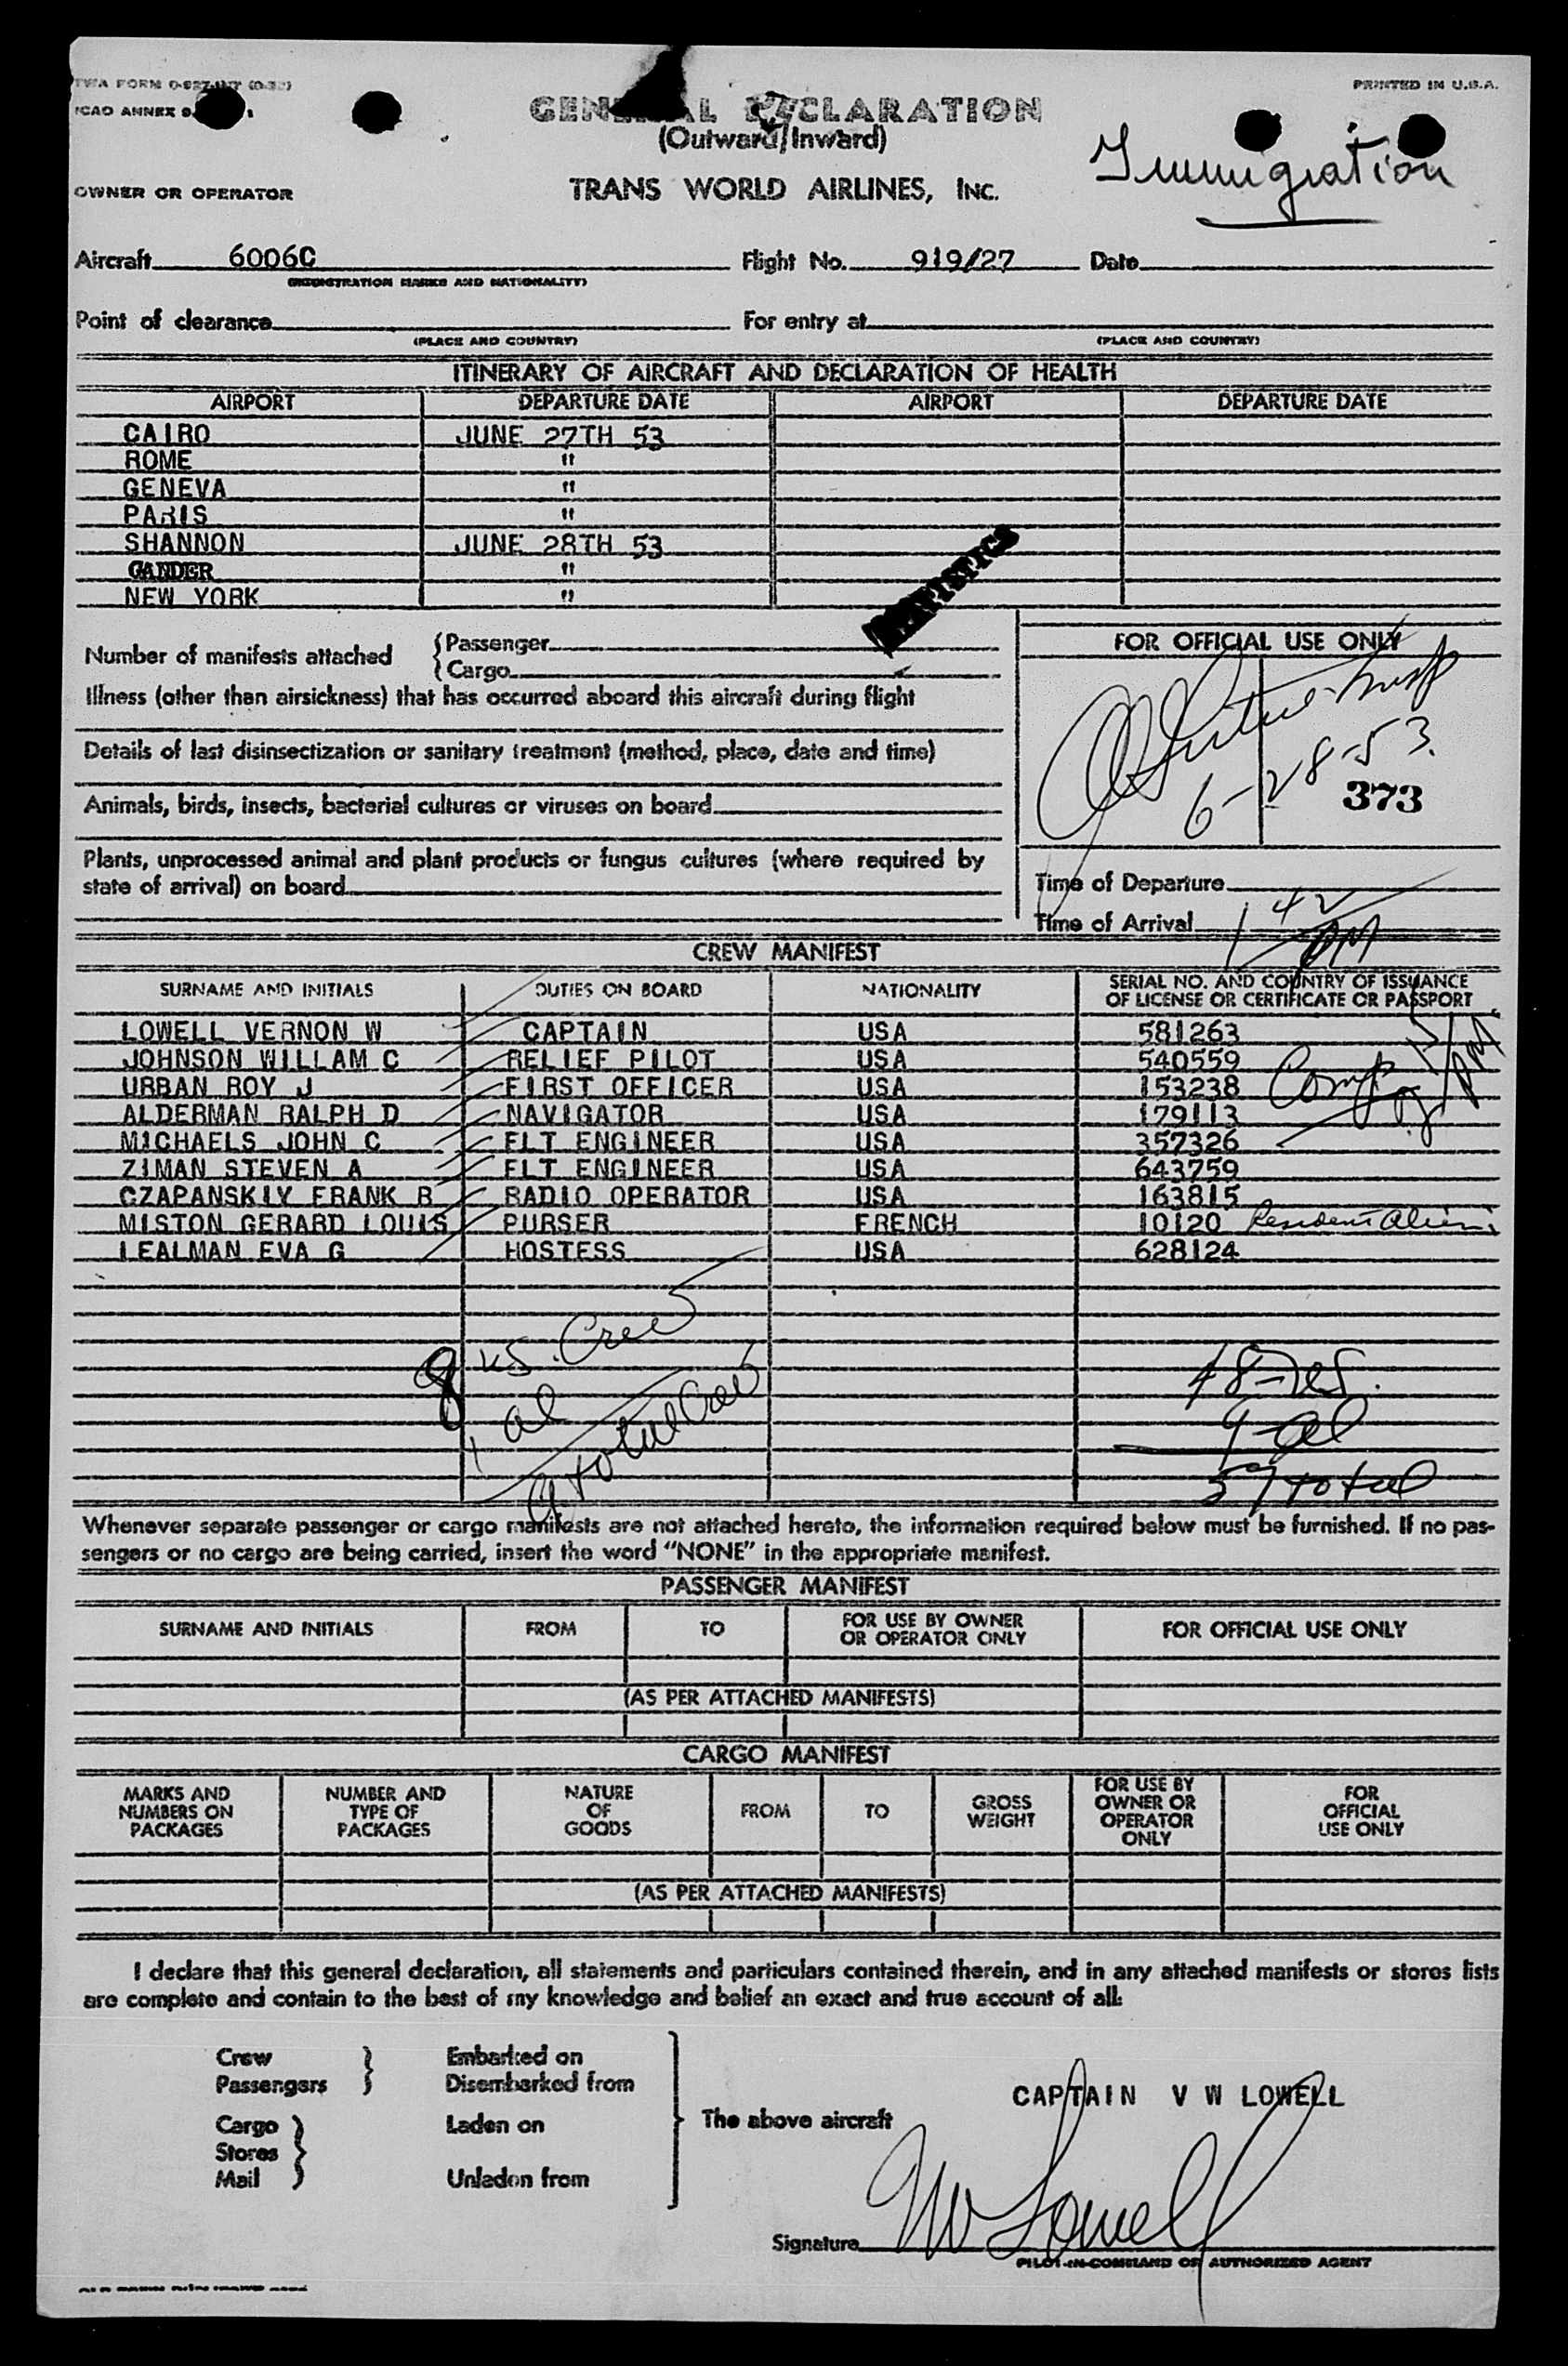 TWA FORM
PRINTED IN U.S.A.
ICAO ANNEX 9
GENERAL DECLARATION
(Outward/Inward)
Immigration
OWNER OR OPERATOR
TRANS WORLD AIRLINES, INC.
Aircraft 6006C Flight No. 919/27 Date
(REGISTRATION MARKS AND NATIONALITY)
Point of clearance For entry at
(PLACE AND COUNTRY) (PLACE AND COUNTRY)
ITINERARY OF AIRCRAFT AND DECLARATION OF HEALTH
AIRPORT DEPARTURE DATE AIRPORT DEPARTURE DATE
CAIRO JUNE 27TH 53
ROME "
GENEVA "
PARIS "
SHANNON JUNE 28TH 53
GANDER "
NEW YORK "
STATISTICS
Number of manifests attached { Passenger
{ Cargo
FOR OFFICIAL USE ONLY
Illness (other than airsickness) that has occurred aboard this aircraft during flight
Details of last disinsectization or sanitary treatment (method, place, date and time)
6-28-53.
373
Animals, birds, insects, bacterial cultures or viruses on board
Plants, unprocessed animal and plant products or fungus cultures (where required by
state of arrival) on board
Time of Departure
Time of Arrival 1 42 PM
CREW MANIFEST
SURNAME AND INITIALS DUTIES ON BOARD NATIONALITY SERIAL NO. AND COUNTRY OF ISSUANCE
OF LICENSE OR CERTIFICATE OR PASSPORT
LOWELL VERNON W CAPTAIN USA 581263
JOHNSON WILLAM C RELIEF PILOT USA 540559
URBAN ROY J FIRST OFFICER USA 153238 Comp
ALDERMAN RALPH D NAVIGATOR USA 179113
MICHAELS JOHN C FLT ENGINEER USA 357326
ZIMAN STEVEN A FLT ENGINEER USA 643759
CZAPANSKIY FRANK B RADIO OPERATOR USA 163815
MISTON GERARD LOUIS PURSER FRENCH 10120 Resident Alien
LEALMAN EVA G HOSTESS USA 628124
8 us. Crew
1 al
9 total Crew
48-
9-al
57 total
Whenever separate passenger or cargo manifests are not attached hereto, the information required below must be furnished. If no pas-
sengers or no cargo are being carried, insert the word "NONE" in the appropriate manifest.
PASSENGER MANIFEST
SURNAME AND INITIALS FROM TO FOR USE BY OWNER
OR OPERATOR ONLY FOR OFFICIAL USE ONLY
(AS PER ATTACHED MANIFESTS)
CARGO MANIFEST
MARKS AND
NUMBERS ON
PACKAGES
NUMBER AND
TYPE OF
PACKAGES
NATURE
OF
GOODS
FROM
TO
GROSS
WEIGHT
FOR USE BY
OWNER OR
OPERATOR
ONLY
FOR
OFFICIAL
USE ONLY
(AS PER ATTACHED MANIFESTS)
I declare that this general declaration, all statements and particulars contained therein, and in any attached manifests or stores lists
are complete and contain to the best of my knowledge and belief an exact and true account of all:
Crew } Embarked on
Passengers } Disembarked from
Cargo } Laden on
Stores }
Mail } Unladen from
} The above aircraft
CAPTAIN V W LOWELL
Signature VW Lowell
PILOT-IN-COMMAND OR AUTHORIZED AGENT